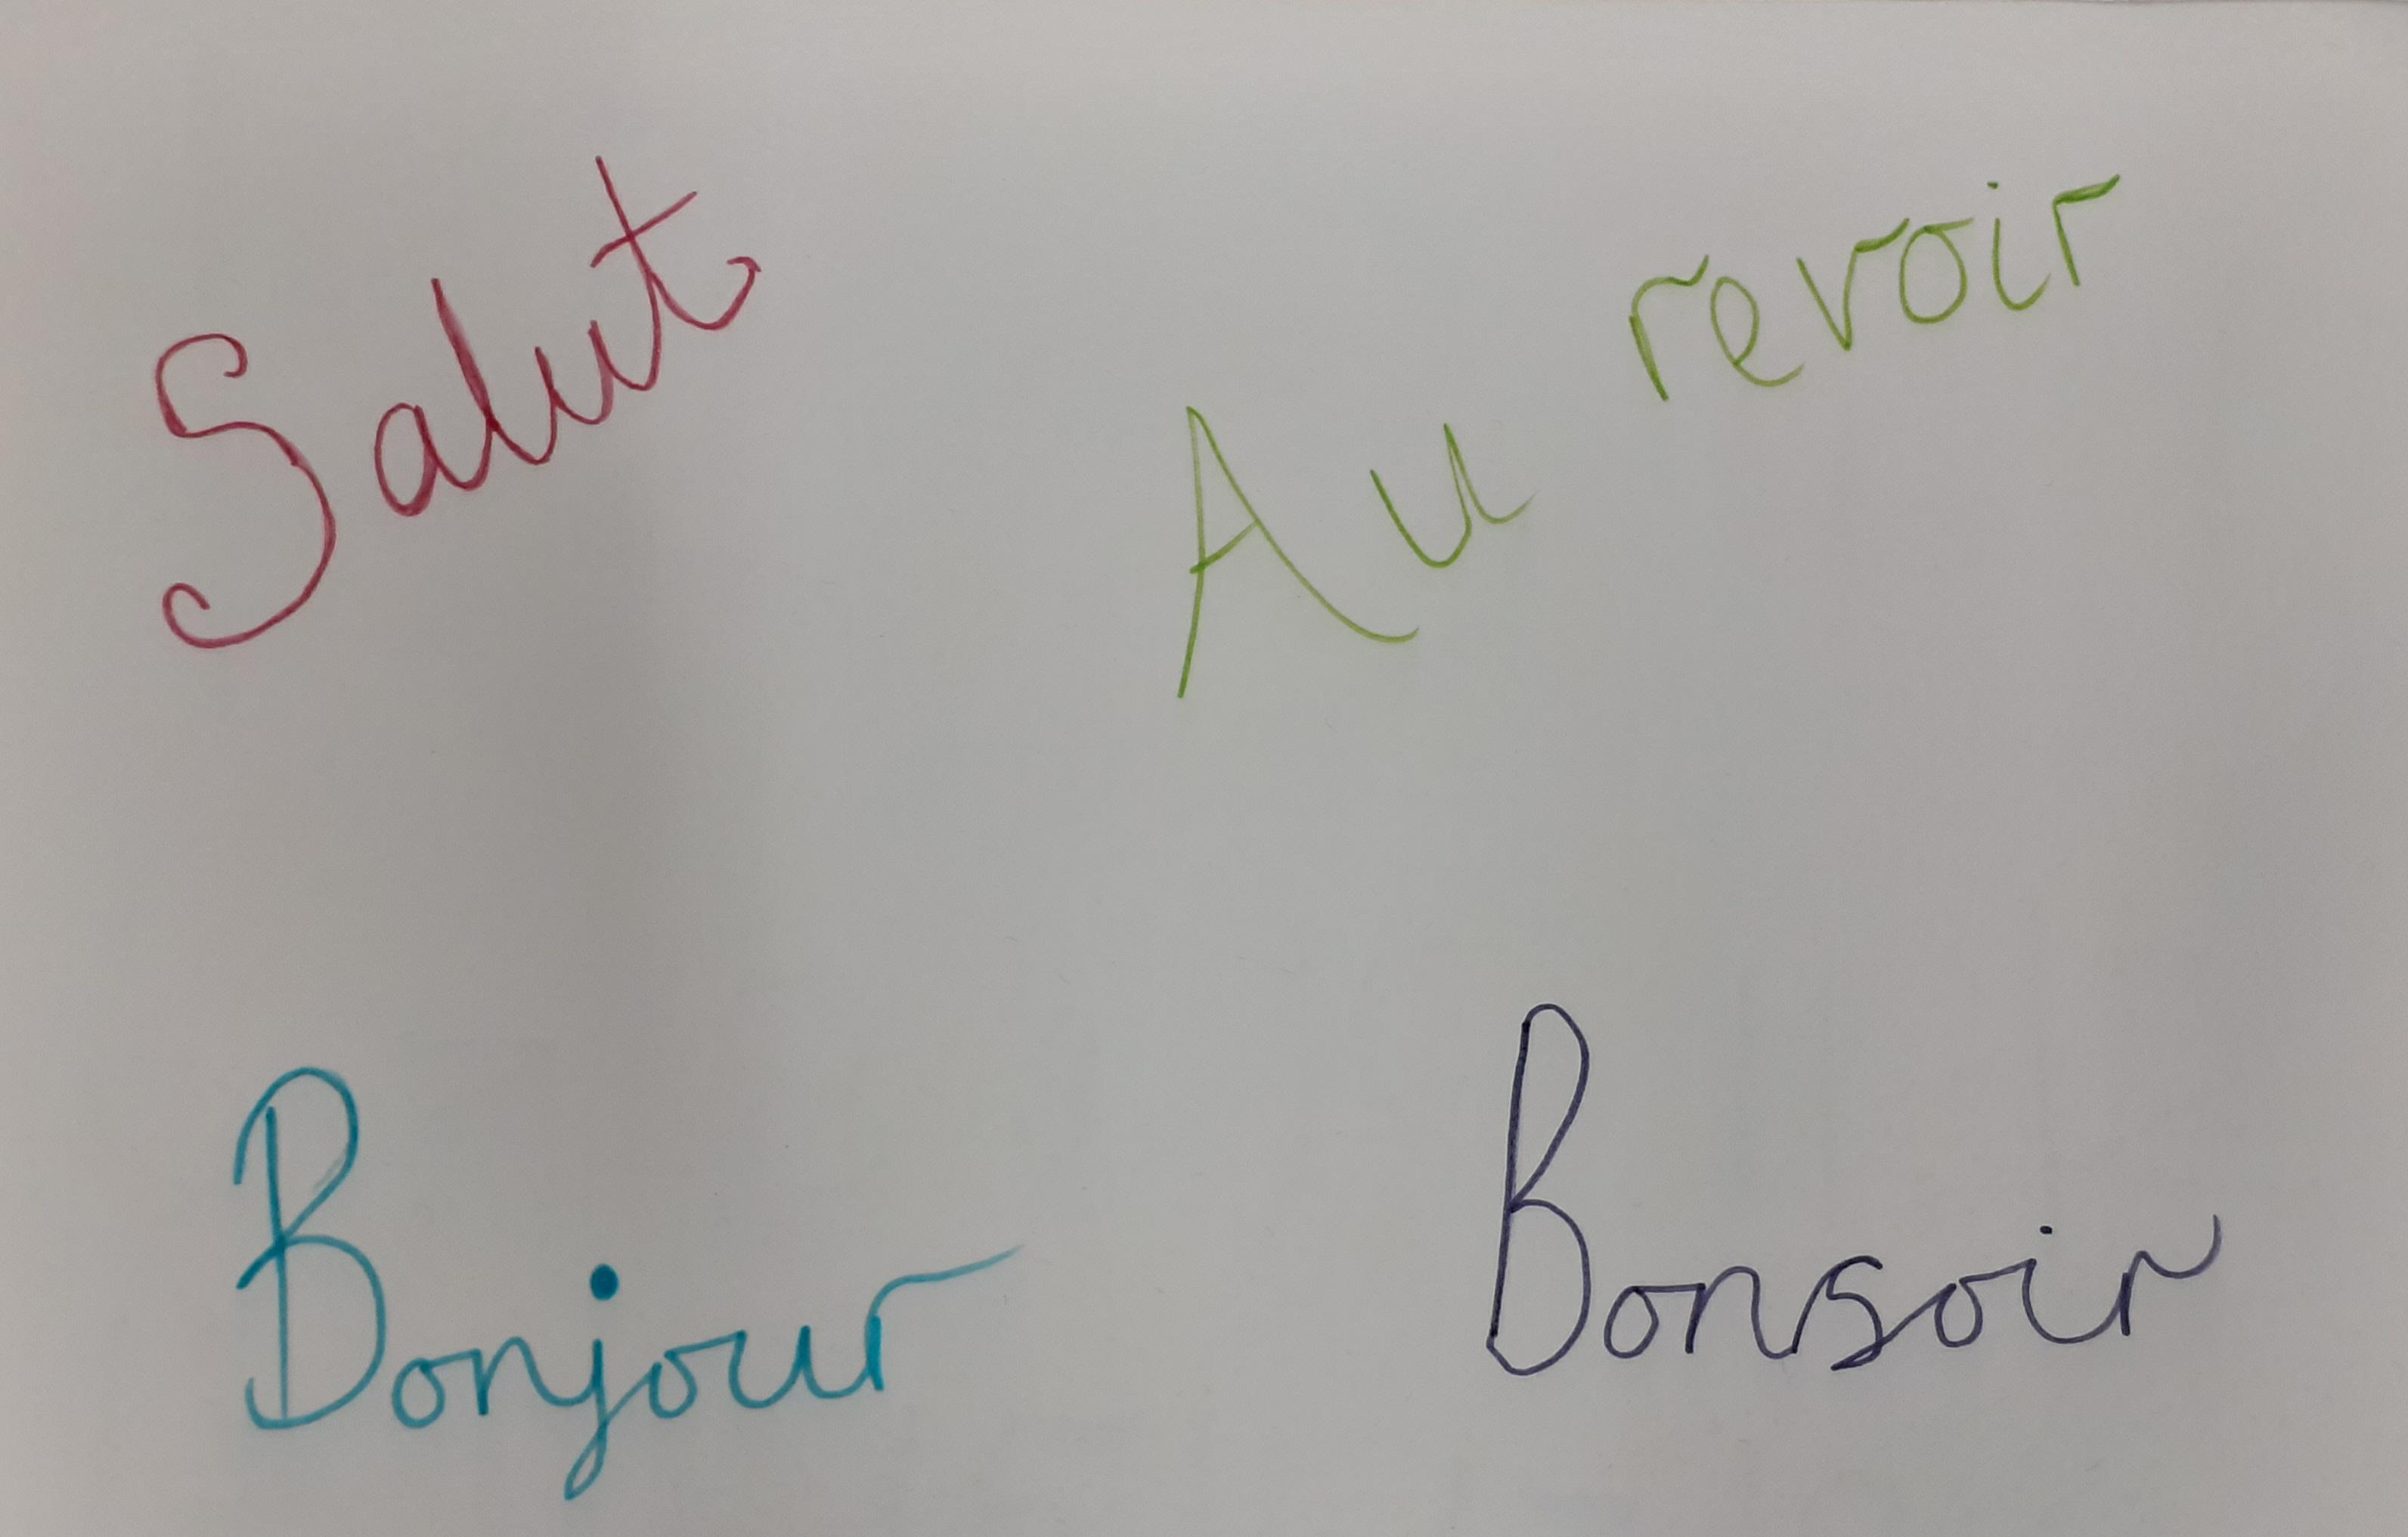 Salut
Au revoir
Bonjour
Bonsoir